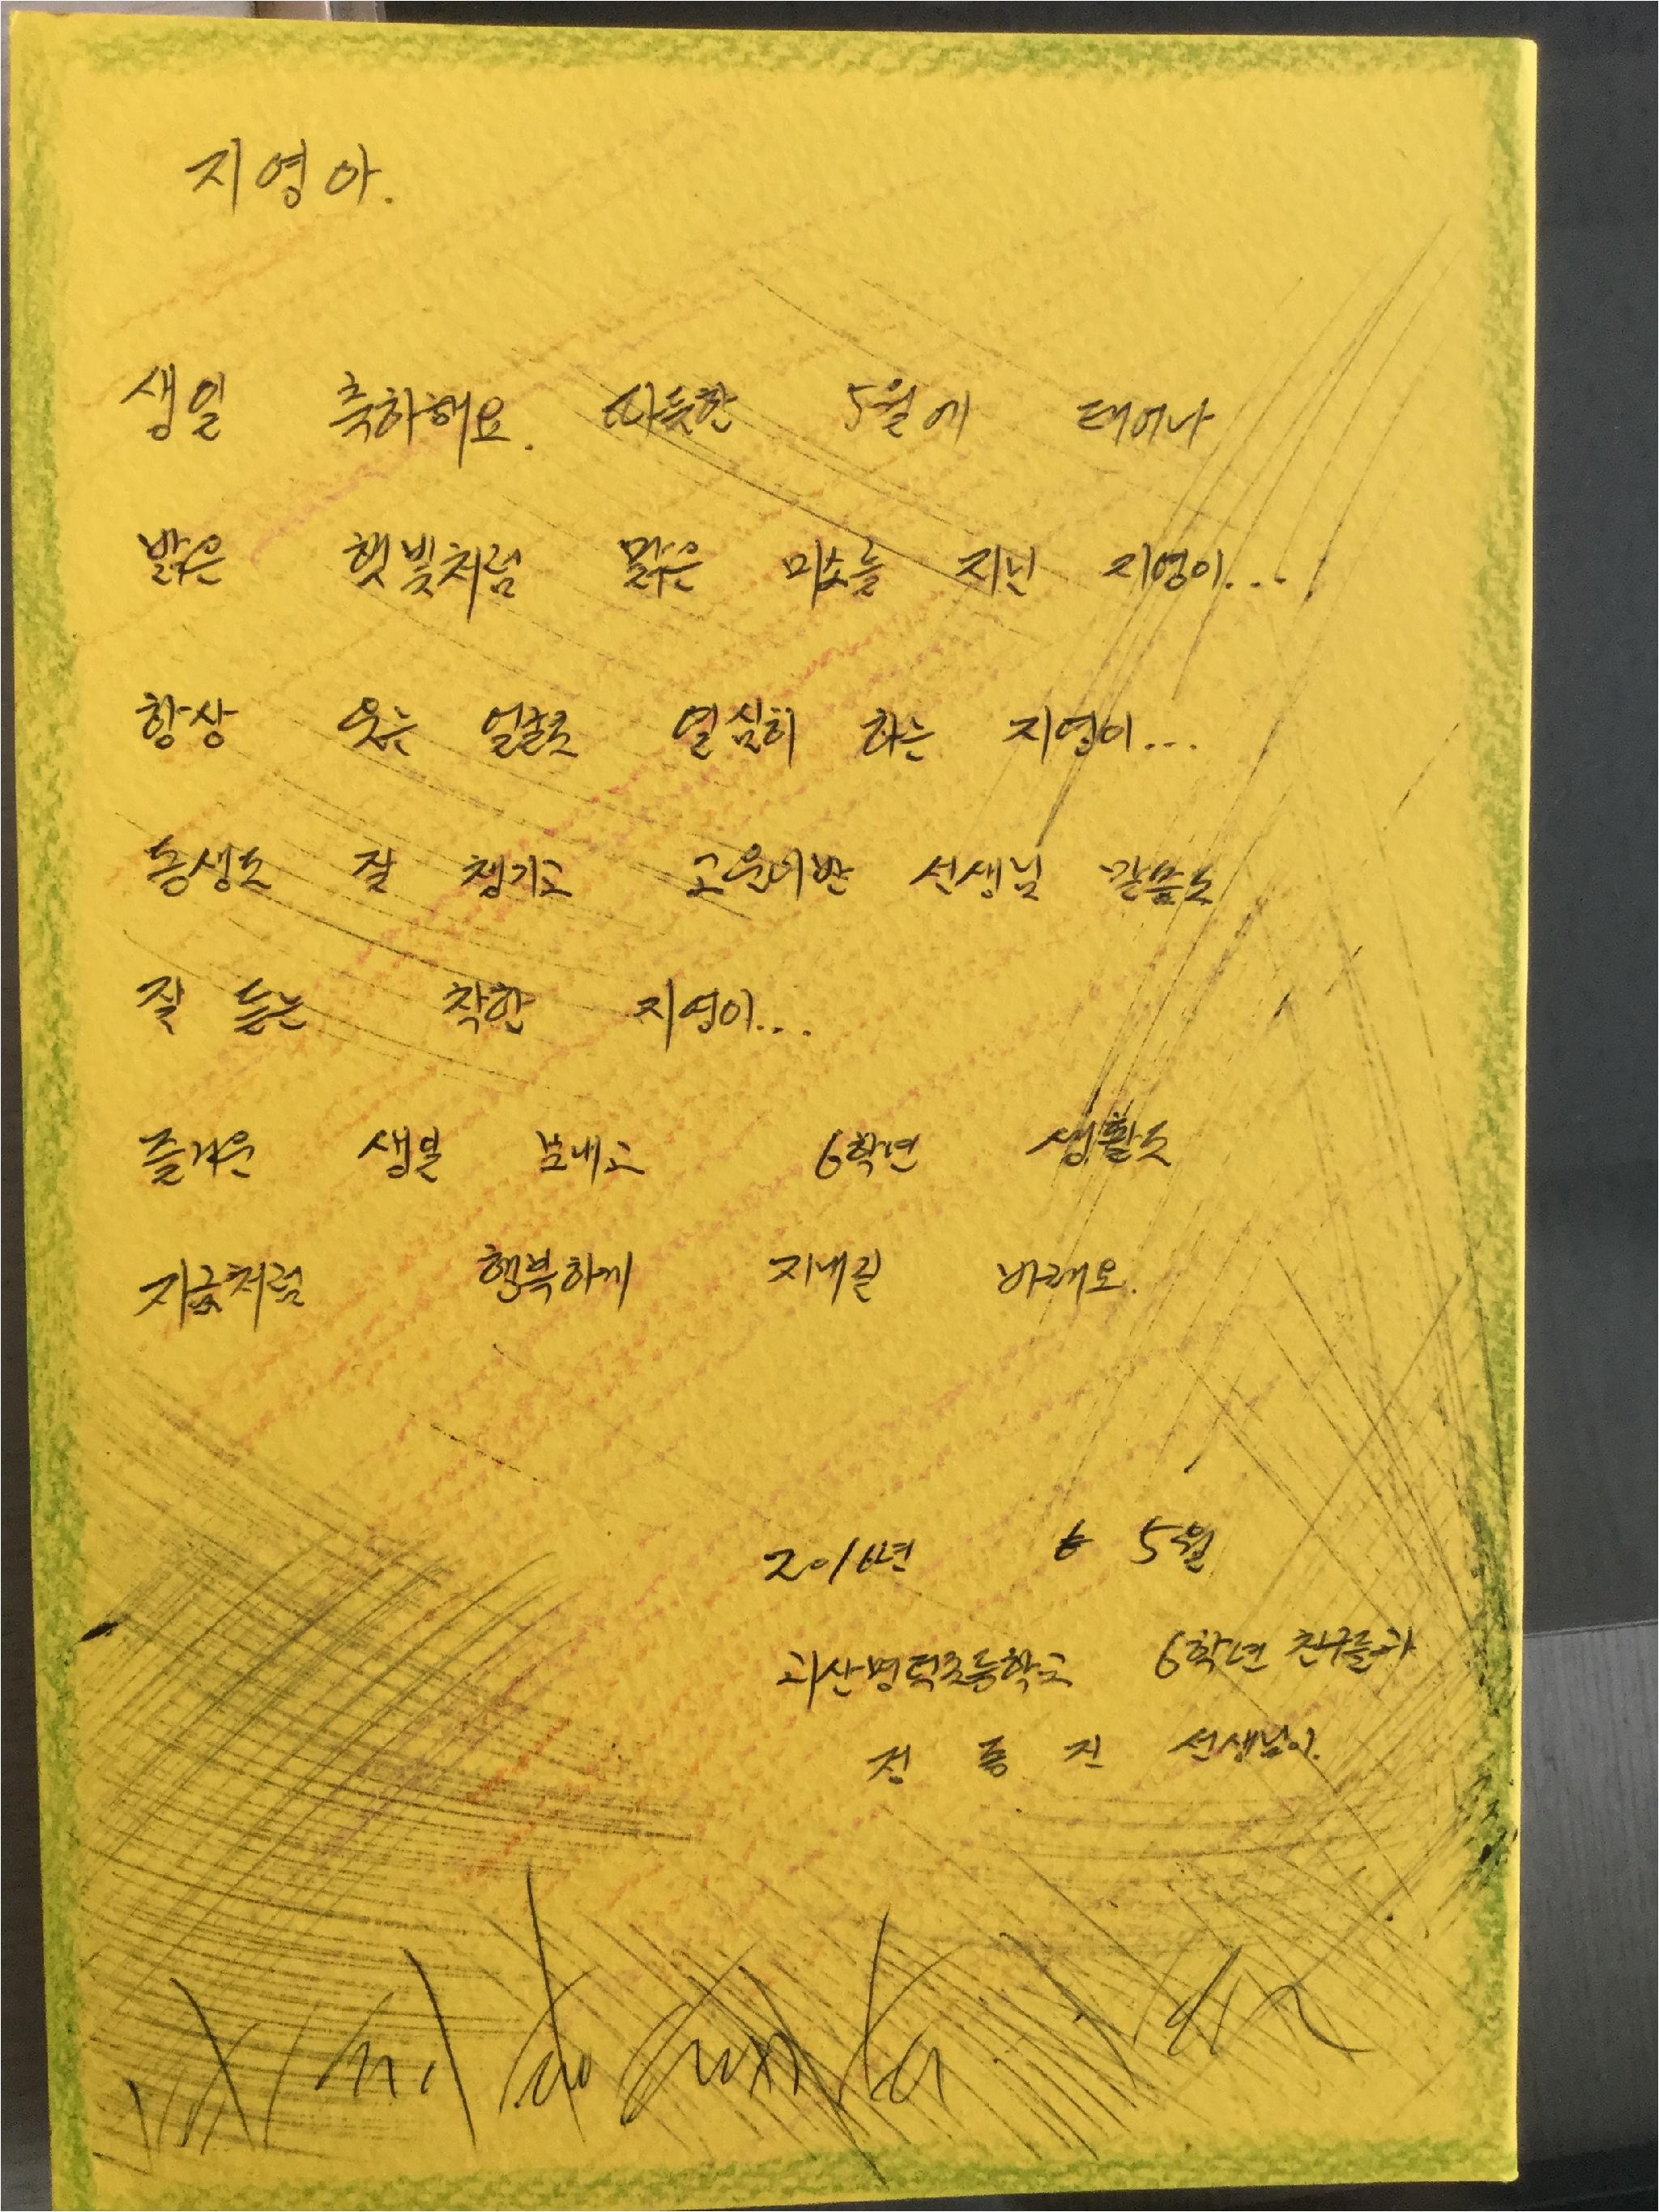 지영아.
생일 축하해요. 따듯한 5월에 태어나
밝은 햇빛처럼 맑은 미소를 지닌 지영이...
항상 웃는 얼굴로 열심히 하는 지영이...
동생도 잘 챙기고 고운이반 선생님 말씀도
잘 듣는 착한 지영이...
즐거운 생일 보내고 6학년 생활도
지금처럼 행복하게 지내길 바래요.
2016년 5월
괴산명덕초등학교 6학년 친구들과
전 종 진 선생님이.